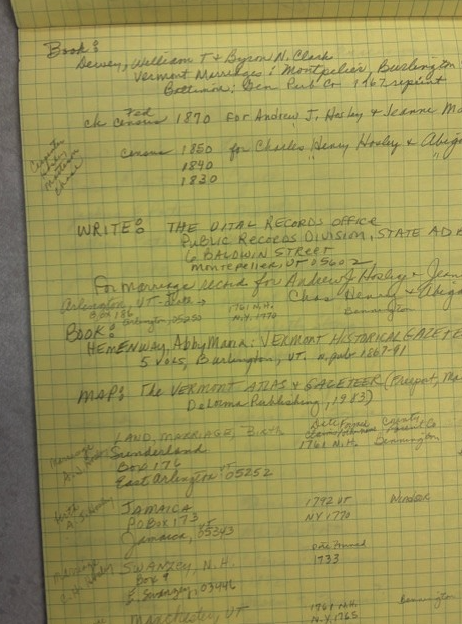 Book:
Dewey, William T & Byron N. Clark
Vermont Marriages: Montpelier, Burlington
Baltimore: Gen Pub Co 1967 reprint
Fed
ck census 1870 for Andrew J. Hosley & Jeanne
census 1850 for Charles Henry Hosley &
1840
1830
WRITE: THE VITAL RECORDS OFFICE
PUBLIC RECORDS DIVISION, STATE
6 BALDWIN STREET
MONTPELIER, UT 05602
For marriage record for Andrew J Hosley & Jean
Chas Henry &
Arlington, VT
Box 186 Arlington, 05250 1761 N.H.
N.Y. 1770 Bennington
BOOK:
HEMENWAY, Abby Maria: VERMONT HISTORICAL
5 vols, Burlington, VT. n. pub 1867-91
MAP: The VERMONT ATLAS & GAGETEER (Freeport, Ma
DeLorme Publishing, 1983)
LAND, MARRIAGE, Birth Date County
Marriage Sunderland 1761 N.H. Bennington
Box 176
East Arlington VT 05252
Birth JAMAICA 1792 VT Windsor
PO BOX 173 NY 1770
Jamaica, VT 05343
marriage SWANZEY, N.H. 1733
Box 9
E. Swanzey, 03446
Manchester, VT 1761 N.H. Bennington
N.Y. 1765